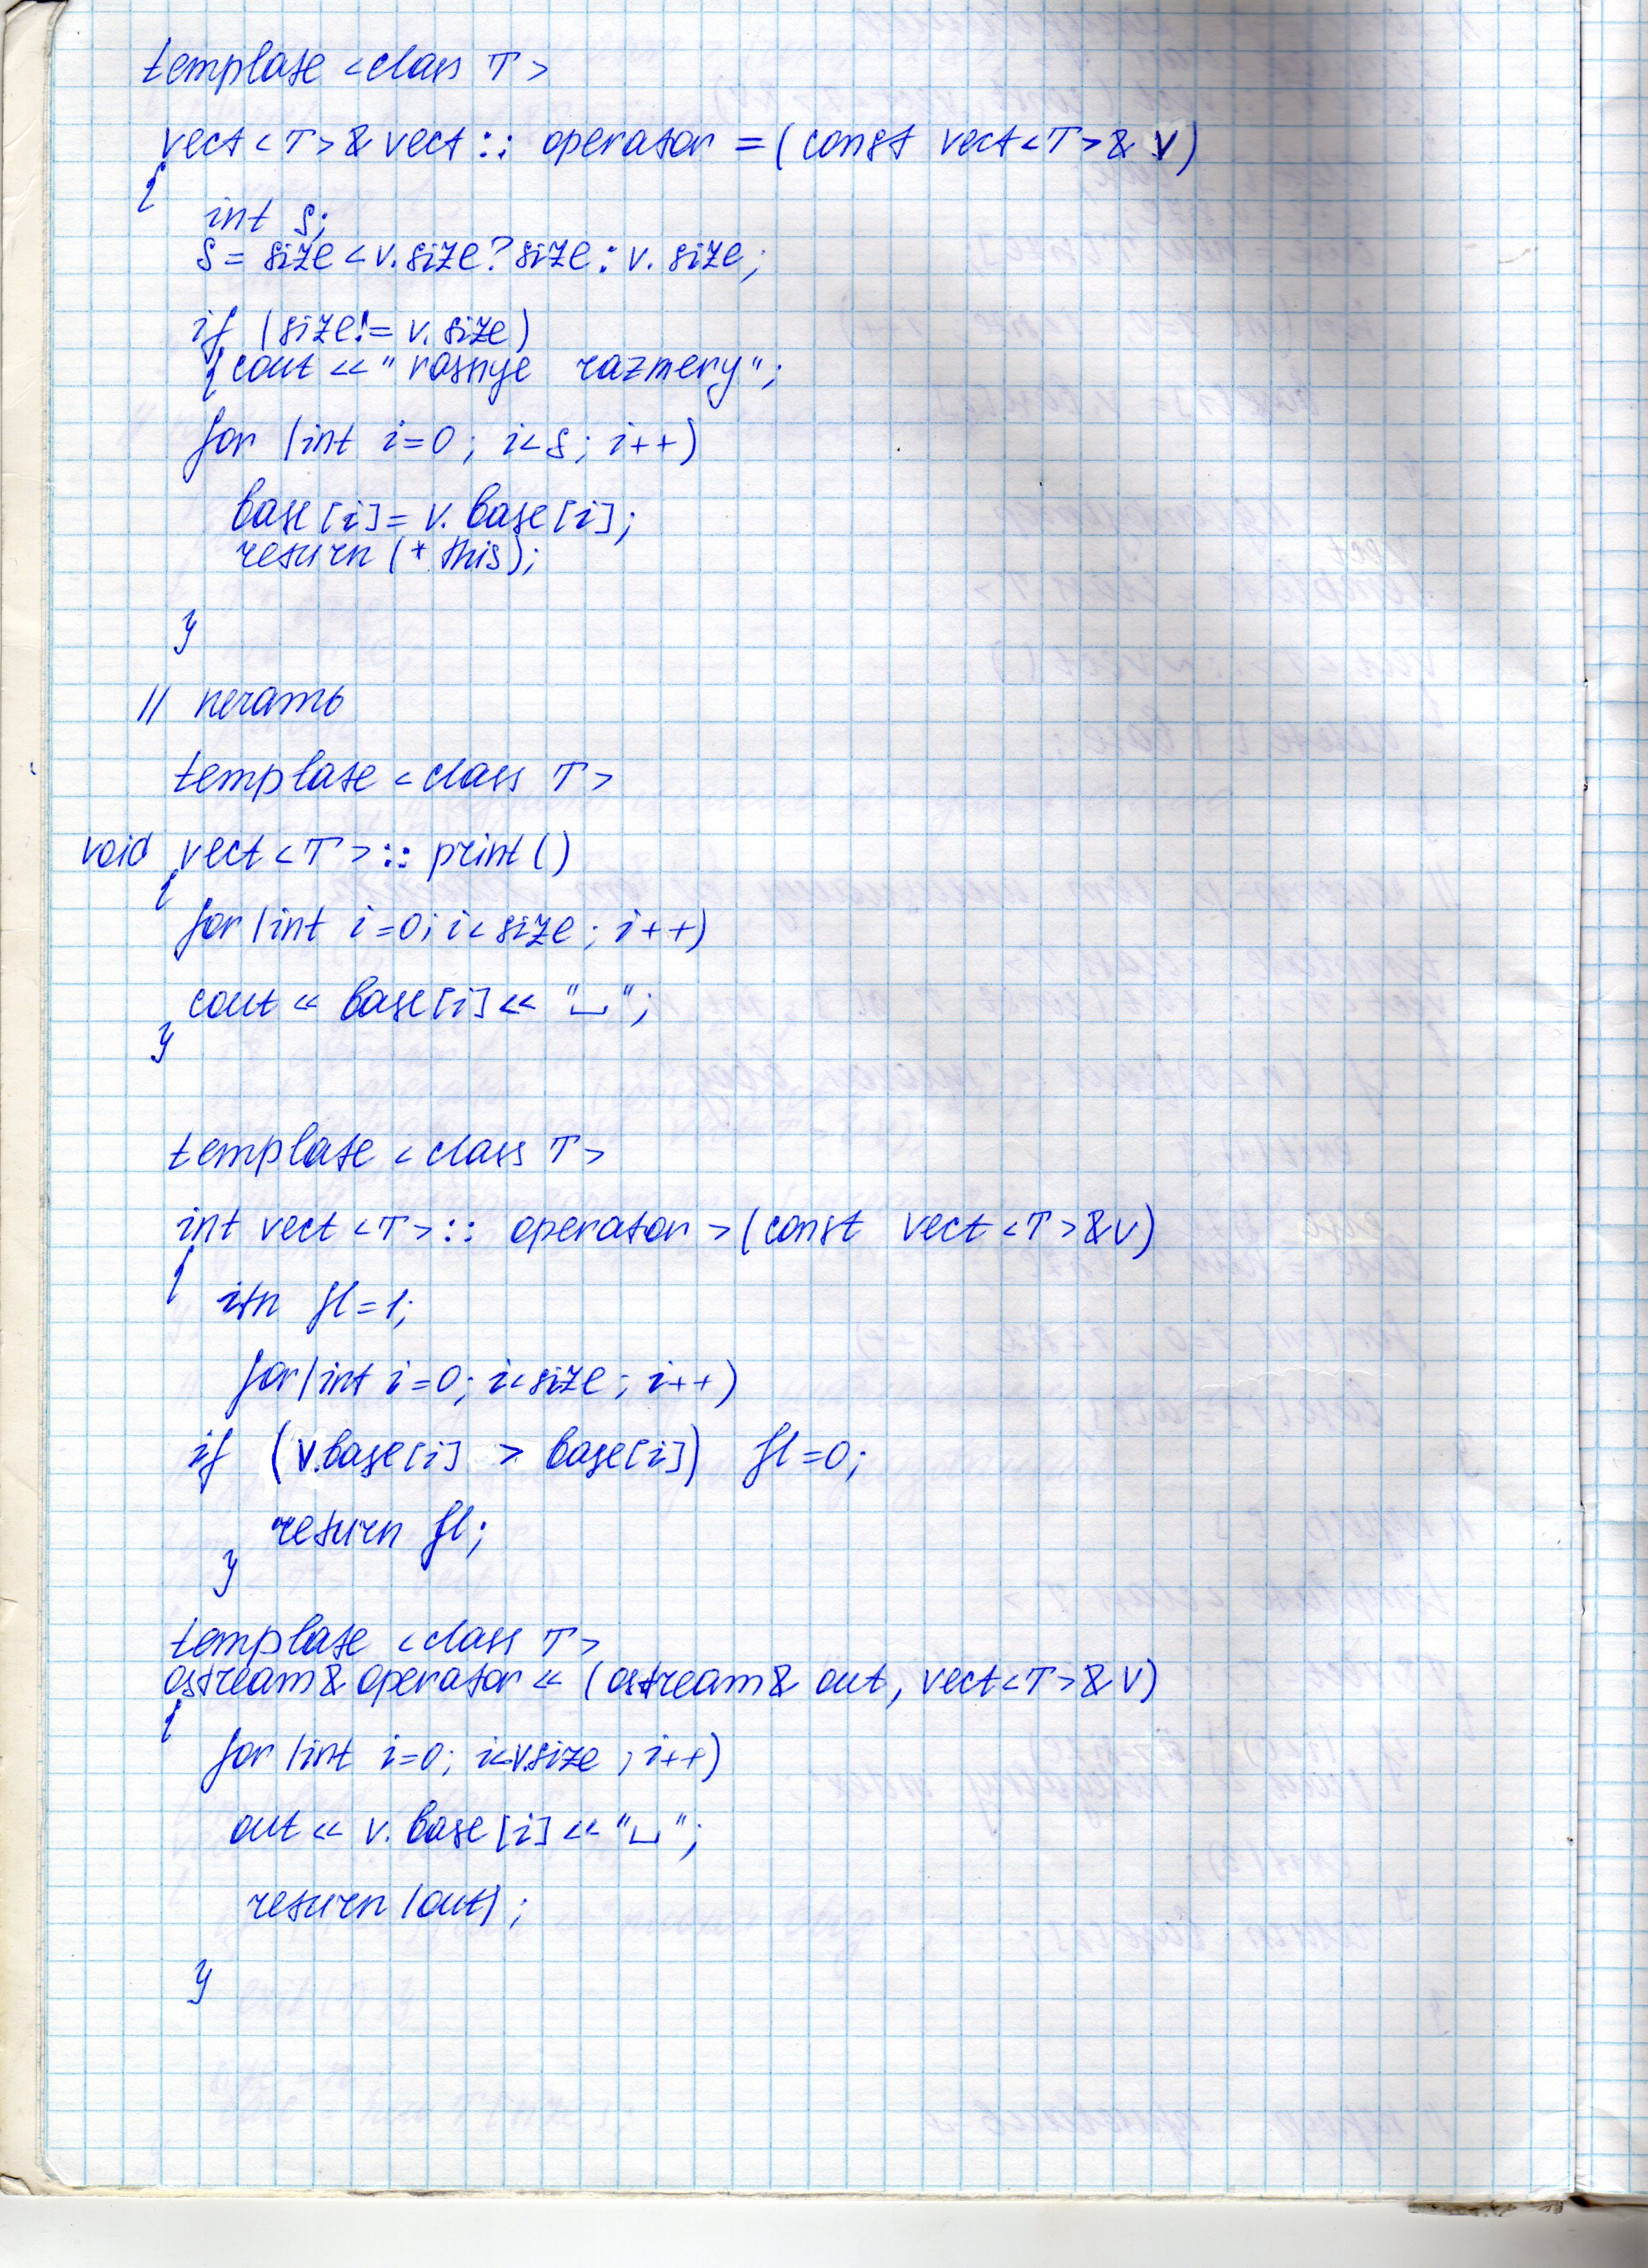 template <class T>
vect<T>& vect :: operator = (const vect<T>& v)
{
int s;
s = size < v.size ? size : v.size;
if (size != v.size)
{ cout << " rasnye razmery";
for (int i=0; i<s; i++)
base[i] = v.base[i];
return (*this);
}
// печать
template <class T>
void vect<T>:: print()
{
for (int i=0; i<size; i++)
cout << base[i] << "␣";
}
template <class T>
int vect <T>:: operator > (const vect <T>& v)
{
itn fl=1;
for (int i=0; i<size; i++)
if (v.base[i] > base[i]) fl=0;
return fl;
}
template <class T>
ostream& operator << (ostream& out, vect<T>& v)
{
for (int i=0; i<v.size; i++)
out << v.base[i] << "␣";
return (out);
}